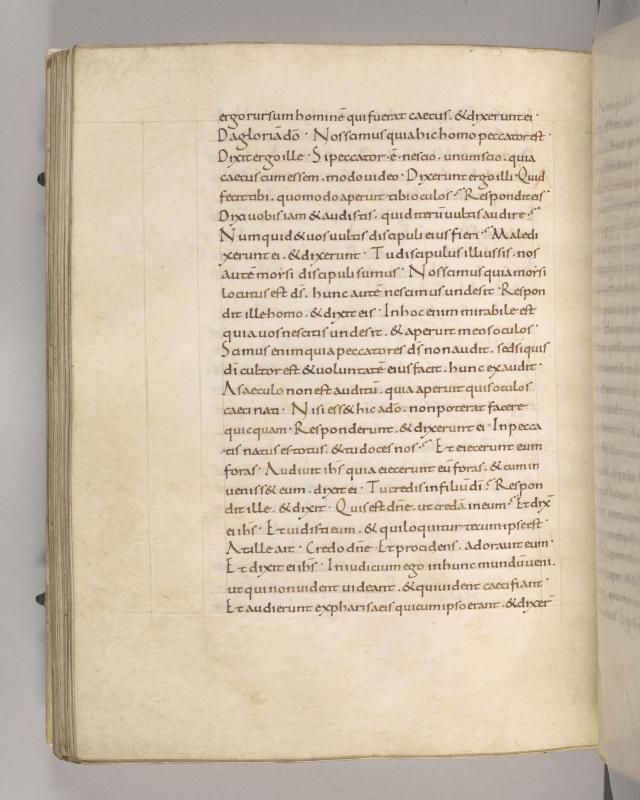 ergo rursum hominē qui fuerat caecus. & dixerunt ei·
Da gloriā dō· Nos scimus quia hic homo peccator est·
Dixit ergo ille· Si peccator·ē·nescio. unum scio. quia
caecus cum essem. modo video· Dixerunt ergo illi· Quid
fecit tibi. quomodo aperuit tibi oculos? Respondit eis·
Dixi uobis iam & audistis. quid iterū uultis audire?
Numquid & uos uultis discipuli eius fieri? Maledi
xerunt ei. & dixerunt· Tu discipulus illius sis. nos
autē moysi discipuli sumus· Nos scimus quia moysi
locutus est dS. hunc autē nescimus unde sit· Respon
dit ille homo. & dixit eis· In hoc enim mirabile est
quia uos nescitis unde sit. & aperuit meos oculos·
Scimus enim quia peccatores dS non audit. sed siquis
dī cultor est & voluntatē eius facit. hunc exaudit·
A saeculo non est auditū. quia aperuit quis oculos
caeci nati· Nisi ess& hic a dō. non poterat facere
quicquam· Responderunt. & dixerunt ei· In pecca
tis natus es totus. & tu doces nos? Et eiecerunt eum
foras· Audiuit ihs quia eiecerunt eū foras. & cum in
uenis& eum. dixit ei· Tu credis in filiū dī? Respon
dit ille. & dixit· Quis est dn̄e. ut credā in eum? Et dix̄
ei ihs· Et uidisti eum. & qui loquitur tecum ipse est·
At ille ait· Credo dn̄e· Et procidens. adorauit eum·
Et dixit ei ihs· In iudicium ego in hunc mundū ueni.
ut qui non uident uideant. & qui uident caeci fiant·
Et audierunt ex pharisaeis qui cum ipso erant. & dixer̄